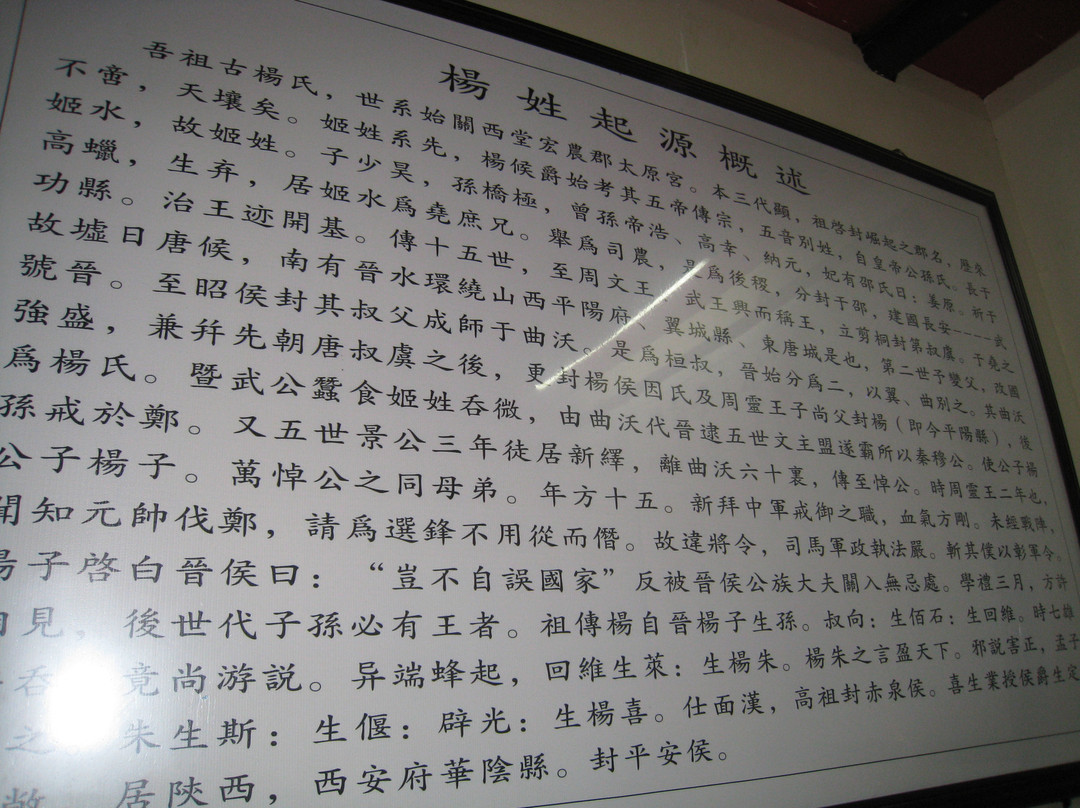 楊姓起源概述
吾祖古楊氏,世系始關西堂宏農郡太原宮。本三代顯,祖啓封崛起之郡名,歷朱
不啻,天壤矣。姬姓系先,楊候爵始考其五帝傳宗,五音別姓,自皇帝公孫氏。長于
姬水,故姬姓。子少昊,孫橋極,曾孫帝浩、高幸、納元,妃有邵氏曰:姜原。祈于
高蠟,生弃,居姬水爲堯庶兄。舉爲司農,是爲後稷,分封于邵,建國長安----武
功縣。治王迹開基。傳十五世,至周文王,武王興而稱王,立剪桐封第叔虞。于堯之
故墟日唐候,南有晉水環繞山西平陽府、翼城縣、東唐城是也,第二世予燮父,改國
號晉。至昭侯封其叔父成師于曲沃。是爲桓叔,晉始分爲二,以翼、曲別之。其曲沃
強盛,兼并先朝唐叔虞之後,更封楊侯因氏及周靈王子尚父封楊(即今平陽縣),後
爲楊氏。暨武公蠶食姬姓吞微,由曲沃代晉逮五世文主盟遂霸所以秦穆公。使公子楊
孫戒於鄭。又五世景公三年徒居新繹,離曲沃六十裏,傳至悼公。時周靈王二年也,
公子楊子。萬悼公之同母弟。年方十五。新拜中軍戒御之職,血氣方剛。未經戰陣,
聞知元帥伐鄭,請爲選鋒不用從而僭。故違將令,司馬軍政執法嚴。斬其僕以彰軍令。
楊子啓白晉侯曰:“豈不自誤國家”反被晉侯公族大夫關入無忌處。學禮三月,方許
見,後世代子孫必有王者。祖傳楊自晉楊子生孫。叔向:生佰石:生回維。時七雄
吞 竟尚游説。异端蜂起,回維生萊:生楊朱。楊朱之言盈天下。邪説害正,孟子
之 朱生斯:生偃:辟光:生楊喜。仕面漢,高祖封赤泉侯。喜生業授侯爵生定
居陝西,西安府華陰縣。封平安侯。